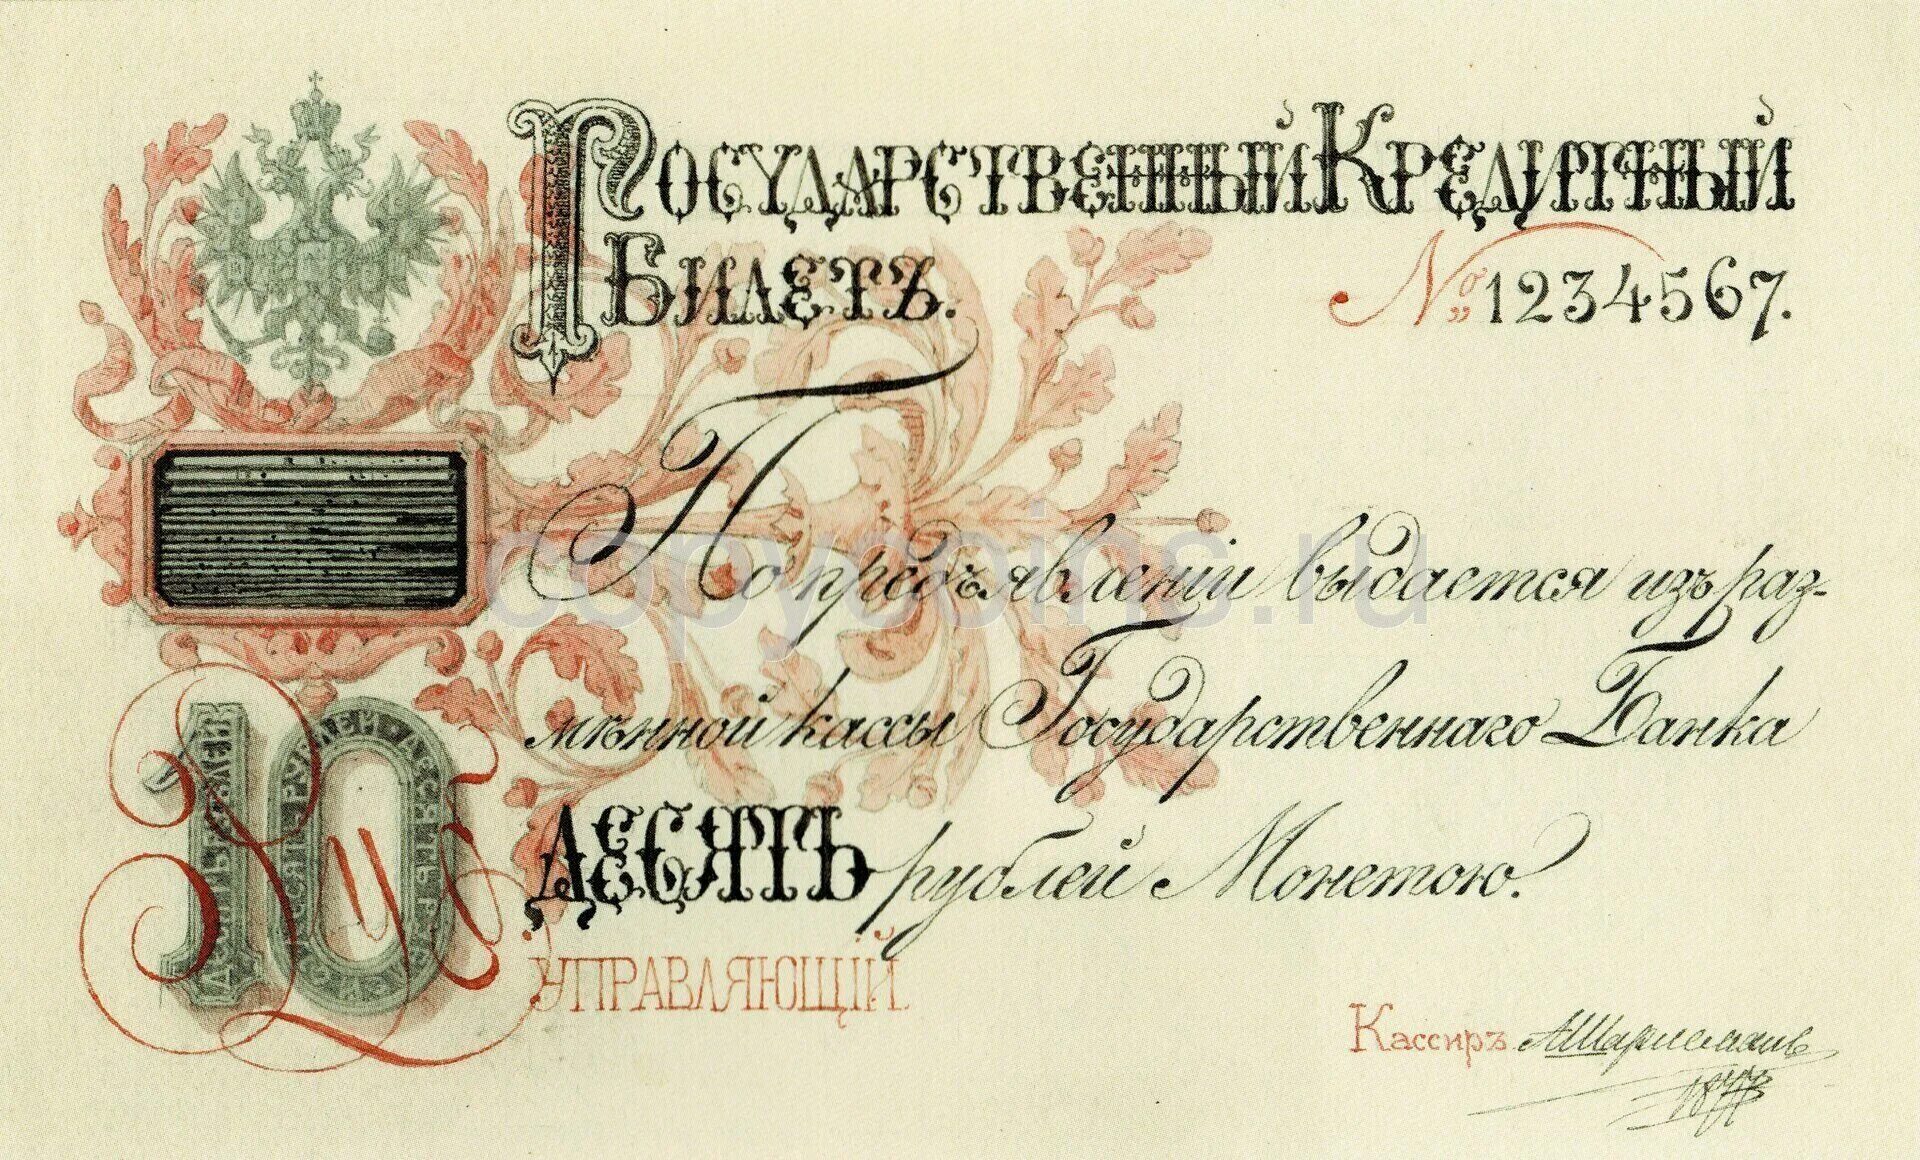 Государственный Кредитный
Билетъ.
№ 1234567.
По предъявленіи выдается изъ раз-
мѣнной кассы Государственнаго Банка
ДЕСЯТЬ рублей Монетою.
10 Руб
ДЕСЯТЬ РУБЛЕЙ
ДЕСЯТЬ РУБЛЕЙ · ДЕСЯТЬ РУБЛЕЙ
УПРАВЛЯЮЩІЙ.
Кассиръ АШарлемань
copycoins.ru